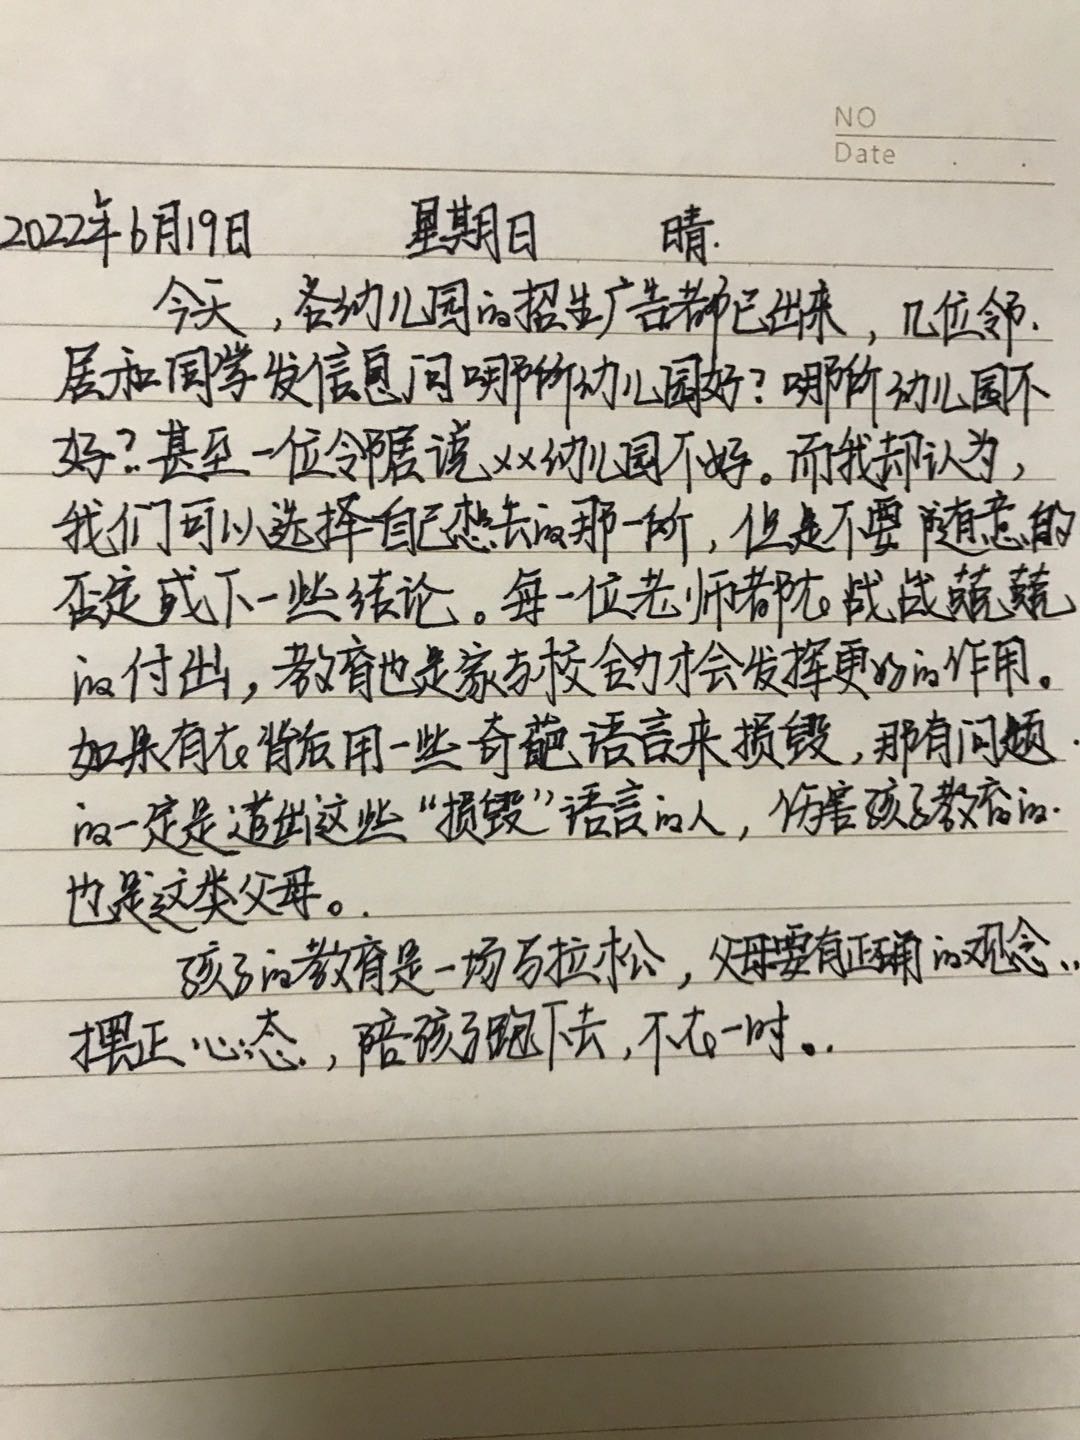 NO
Date . .
2022年6月19日 星期日 晴.
今天，各幼儿园的招生广告都已出来，几位邻
居和同学发信息问哪所幼儿园好？哪所幼儿园不
好？甚至一位邻居说xx幼儿园不好。而我却认为，
我们可以选择自己想去的那一所，但是不要随意的
否定或下一些结论。每一位老师都在战战兢兢
的付出，教育也是家与校合力才会发挥更好的作用。
如果有在背后用一些奇葩语言来损毁，那有问题
的一定是道出这些“损毁”语言的人，伤害孩子教育的
也是这类父母。
孩子的教育是一场马拉松，父母要有正确的观念，
摆正心态，陪孩子跑下去，不在一时。